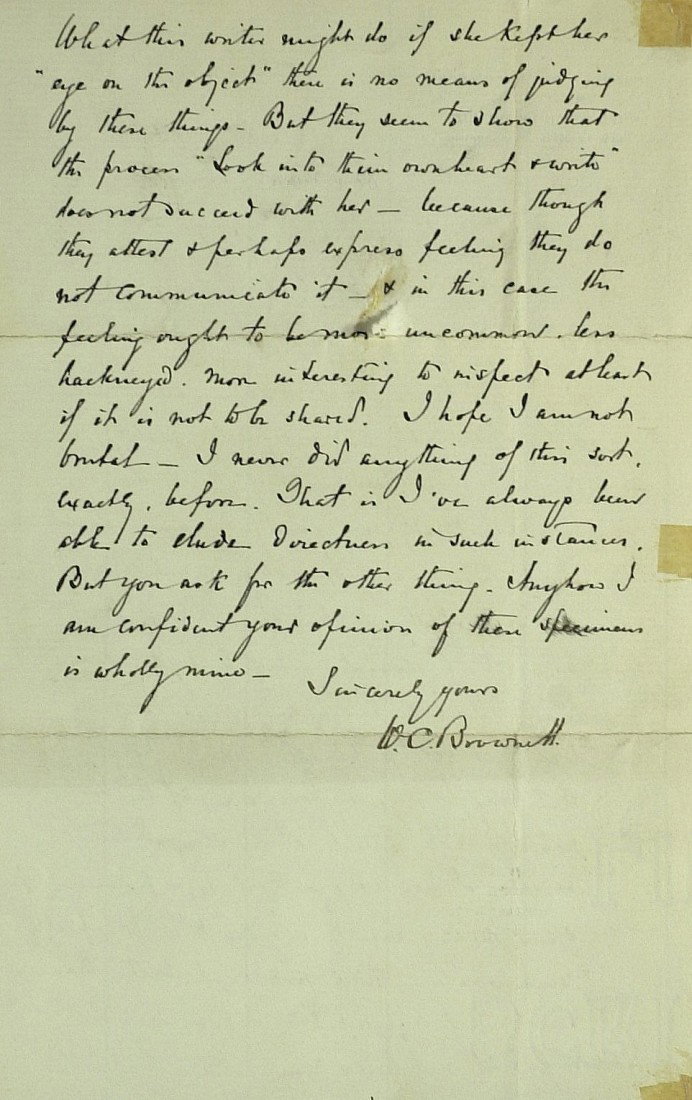 What this writer might do if she kept her
"eye on the object" there is no means of judging
by these things - But they seem to show that
the process "Look into thine own heart & write"
does not succeed with her - because though
they attest & perhaps express feeling they do
not communicate it - & in this case the
feeling ought to be more uncommon, less
hackneyed, more interesting to inspect at least
if it is not to be shared. I hope I am not
brutal - I never did anything of this sort,
exactly, before. That is I've always been
able to elude directness in such instances.
But you ask for the other thing. Anyhow I
am confident your opinion of these specimens
is wholly mine -
Sincerely yours
W. C. Brownell.